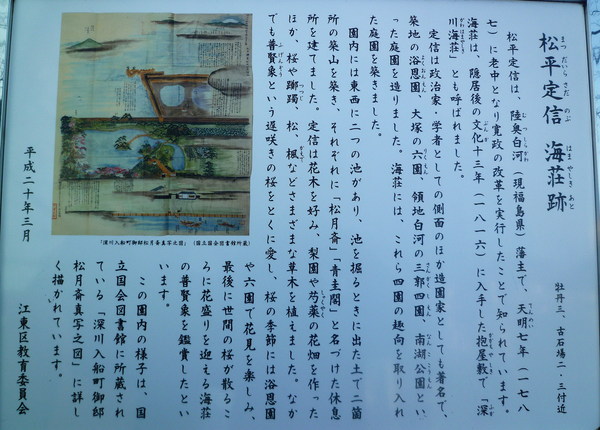 松平定信 海荘跡
まつだいらさだのぶ はまやしきあと
牡丹三、古石場二・三付近
松平定信は、陸奥白河（現福島県）藩主で、天明七年（一七八
七）に老中となり寛政の改革を実行したことで知られています。
海荘は、隠居後の文化十三年（一八一六）に入手した抱屋敷で「深
川海荘」とも呼ばれました。
定信は政治家・学者としての側面のほか造園家としても著名で、
築地の浴恩園、大塚の六園、領地白河の三郭四園、南湖公園とい
った庭園を造りました。海荘には、これら四園の趣向を取り入れ
た庭園を築きました。
園内には東西に二つの池があり、池を掘るときに出た土で二箇
所の築山を築き、それぞれに「松月斎」「青圭閣」と名づけた休息
所を建てました。定信は花木を好み、梨園や芍薬の花畑を作った
ほか、桜や躑躅、松、楓などさまざまな草木を植えました。なか
でも普賢象という遅咲きの桜をとくに愛し、桜の季節には浴恩園
や六園で花見を楽しみ、
最後に世間の桜が散るこ
ろに花盛りを迎える海荘
の普賢象を鑑賞したとい
います。
この園内の様子は、国
立国会図書館に所蔵され
ている「深川入船町御邸
松月斎真写之図」に詳し
く描かれています。
「深川入船町御邸松月斎真写之図」（国立国会図書館所蔵）
平成二十年三月
江東区教育委員会